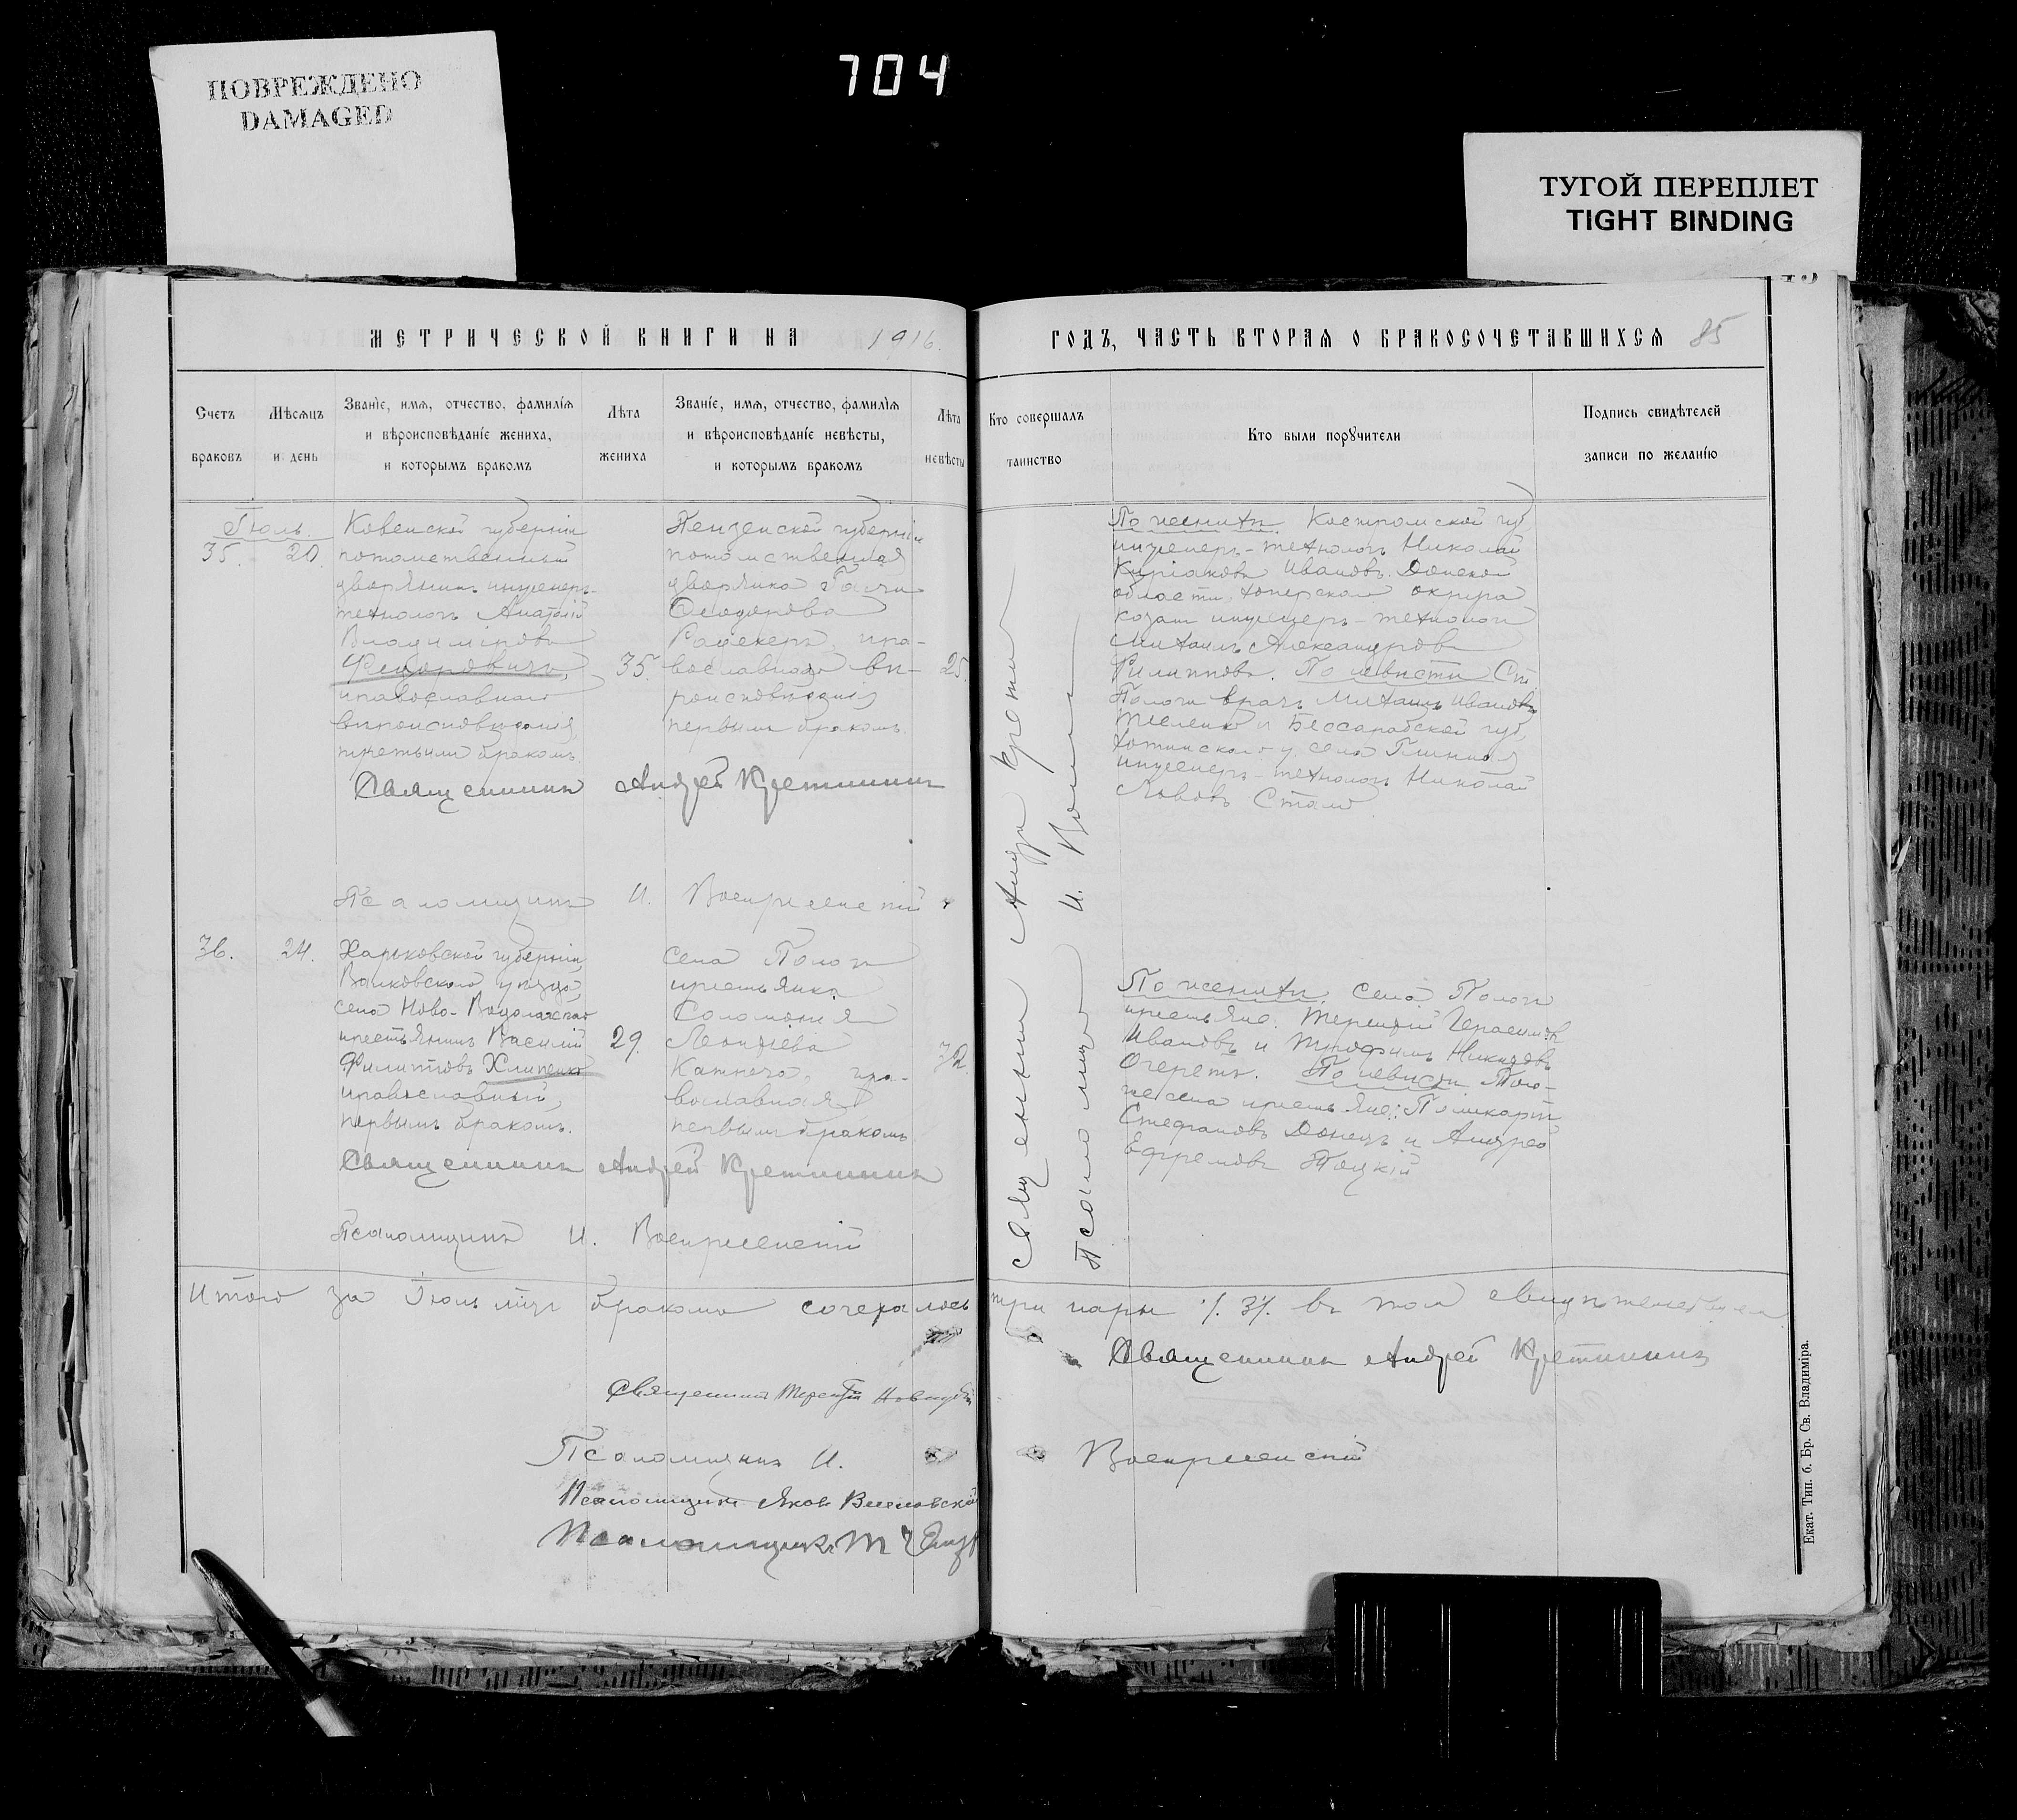 704
ПОВРЕЖДЕНО
DAMAGED
ТУГОЙ ПЕРЕПЛЕТ
TIGHT BINDING
МЕТРИЧЕСКОЙ КНИГИ НА 1916.
Счетъ браковъ
Мѣсяцъ и день
Званіе, имя, отчество, фамилія
и вѣроисповѣданіе жениха,
и которымъ бракомъ
Лѣта жениха
Званіе, имя, отчество, фамилія
и вѣроисповѣданіе невѣсты,
и которымъ бракомъ
Лѣта невѣсты
Іюль.
35. 20.
Ковенской губерніи
потомственный
дворянинъ инженеръ-
технологъ Анатолій
Владиміровъ
Федоровичъ,
православнаго
вѣроисповѣданія,
третьимъ бракомъ
35.
Пензенской губерніи
потомственная
дворянка
Ѳеодорова
пра-
вославнаго вѣ-
роисповѣданія
первымъ бракомъ
25.
Священникъ Андрей Кретининъ
Псаломщикъ И. Воскресенскій
36. 24.
Харьковской губерніи,
Валковского уѣзда,
села Ново-Водолажская
крестьянинъ Василій
Филиповъ Хлипенко
православный,
первымъ бракомъ.
29.
села Пологи
крестьянка
Соломонія
Леонтіева
пра-
вославная
первымъ бракомъ
32.
Священникъ Андрей Кретининъ
Псаломщикъ И. Воскресенскій
Итого за Іюль мѣц бракомъ сочеталось
Священникъ Терентій
Псаломщикъ И.
Псаломщикъ Яковъ
Псаломщикъ
ГОДЪ, ЧАСТЬ ВТОРАЯ О БРАКОСОЧЕТАВШИХСЯ 85
Кто совершалъ таинство
Кто были поручители
Подпись свидѣтелей
записи по желанію
Священникъ Андр. Крети
Псаломщикъ И. Воскр
По женихѣ. Костромской губ.
инженеръ-технологъ Николай
Ивановъ. Донской
области, Хоперскаго округа
козакъ инженеръ-технологъ
Михаилъ Александровъ
Филипповъ. По невѣстѣ Ст.
Пологи врачъ Михаилъ Ивановъ
и Бессарабской губ.
Хотинскаго у. села
инженеръ-технологъ Николай
Львовъ
По женихѣ. села Пологи
крестьяне: Терентій Герасимовъ
Ивановъ и Трофимъ Никитовъ
Очереть. По невѣстѣ Поло-
не села крестьяне: Поликарпъ
Стефановъ Донецъ и Андрей
Ефремовъ Тоцкій
три пары /.3/. въ томъ свидѣтельствуемъ
Священникъ Андрей Кретининъ
Воскресенскій
Екат. Тип. б. Бр. Св. Владиміра.